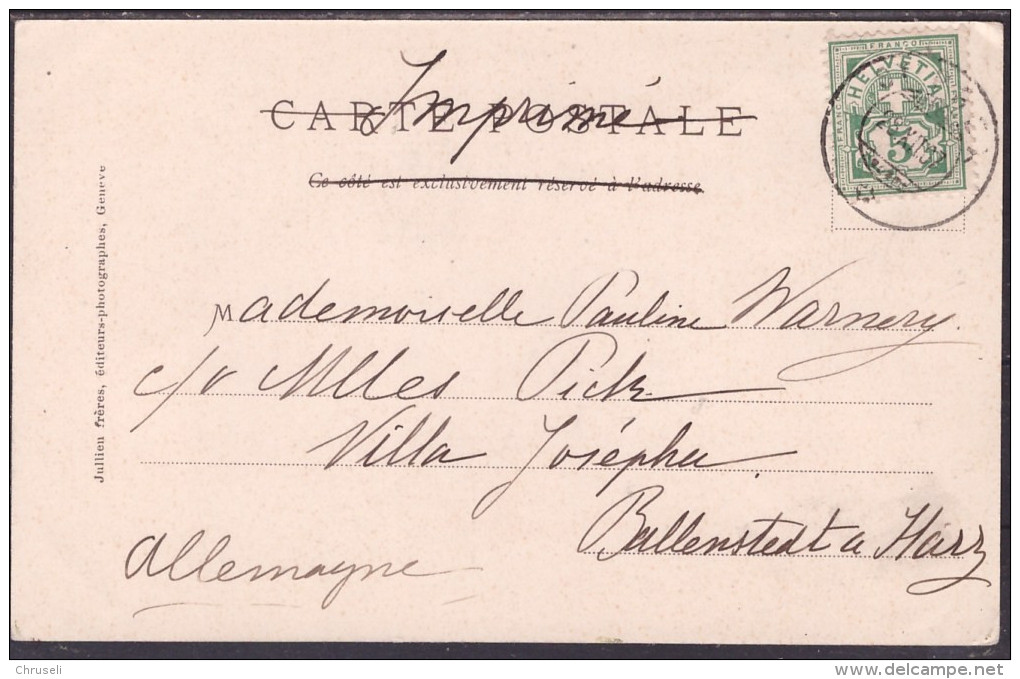 Imprimé
CARTE POSTALE
Ce côté est exclusivement réservé à l'adresse.
FRANCO
HELVETIA
5
Mademoiselle Pauline Warnery.
c/o Mlles Pick
Villa Josépha.
Ballenstedt a Harz
Allemagne
Jullien frères, éditeurs-photographes, Genève
Chruseli
www.delcampe.net